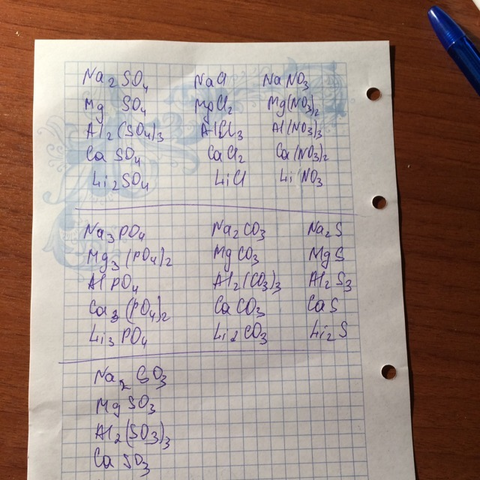 Na2SO4 NaCl NaNO3
MgSO4 MgCl2 Mg(NO3)2
Al2(SO4)3 AlCl3 Al(NO3)3
CaSO4 CaCl2 Ca(NO3)2
Li2SO4 LiCl LiNO3
Na3PO4 Na2CO3 Na2S
Mg3(PO4)2 MgCO3 MgS
AlPO4 Al2(CO3)3 Al2S3
Ca3(PO4)2 CaCO3 CaS
Li3PO4 Li2CO3 Li2S
Na2SO3
MgSO3
Al2(SO3)3
CaSO3